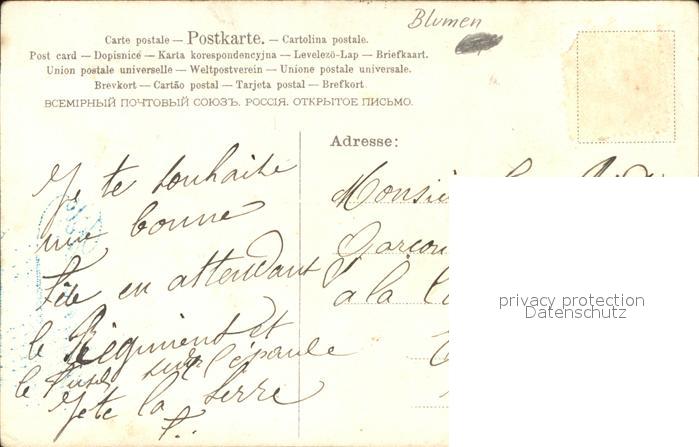 Blumen
Carte postale — Postkarte. — Cartolina postale.
Post card — Dopisnice — Karta korespondencyjna — Levelező-Lap — Briefkaart.
Union postale universelle — Weltpostverein — Unione postale universale.
Brevkort — Cartão postal — Tarjeta postal — Brefkort
ВСЕМІРНЫЙ ПОЧТОВЫЙ СОЮЗЪ. РОССІЯ. ОТКРЫТОЕ ПИСЬМО.
Adresse:
Je te souhaite
une bonne
fête en attendant
le Régiment et
le fusil sur l'épaule
Je te la serre
F.
Monsie
Garcon
a la
privacy protection
Datenschutz